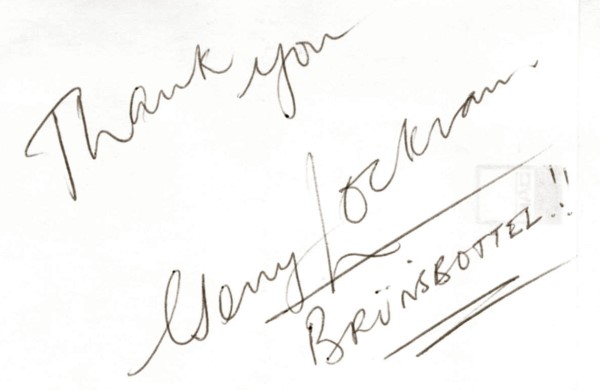 Thank you
Gerry Lockran.
BRÜNSBOTTEL!!